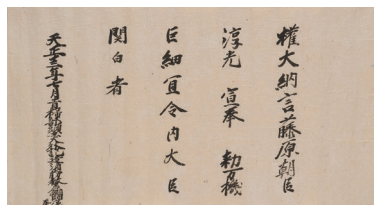 權大納言藤原朝臣
淳光 宣奉 勅万機
巨細宜令内大臣
関白者
天正十三年七月十一日